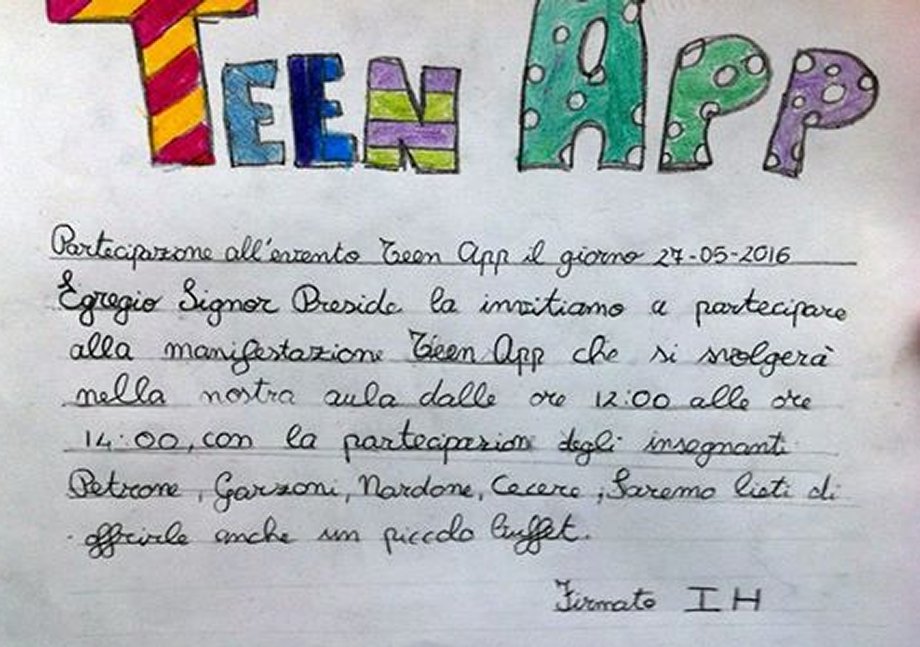 TEEN APP
Partecipazione all'evento Teen App il giorno 27-05-2016
Egregio Signor Preside la invitiamo a partecipare
alla manifestazione Teen App che si svolgerà
nella nostra aula dalle ore 12:00 alle ore
14:00, con la partecipazione degli insegnanti
Petrone, Garzoni, Nardone, Cecere, Saremo lieti di
offrirle anche un piccolo buffet.
Firmato I H